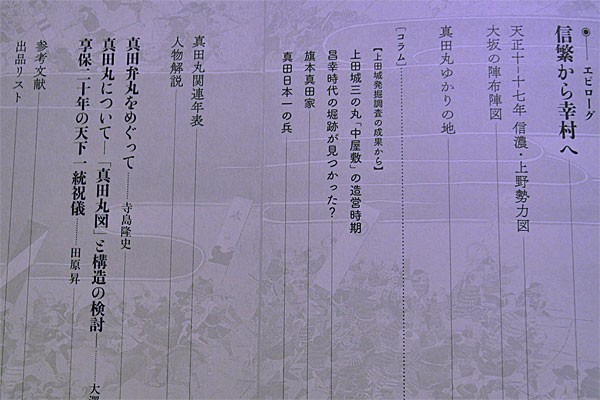 ◉ エピローグ
信繁から幸村へ
天正十~十七年 信濃・上野勢力図
大坂の陣布陣図
真田丸ゆかりの地
[コラム]
【上田城発掘調査の成果から】
上田城三の丸「中屋敷」の造営時期
昌幸時代の堀跡が見つかった?
旗本真田家
真田日本一の兵
真田丸関連年表
人物解説
真田弁丸をめぐって 寺島隆史
真田丸について―「真田丸図」と構造の検討 大澤
享保二十年の天下一統祝儀 田原昇
参考文献
出品リスト